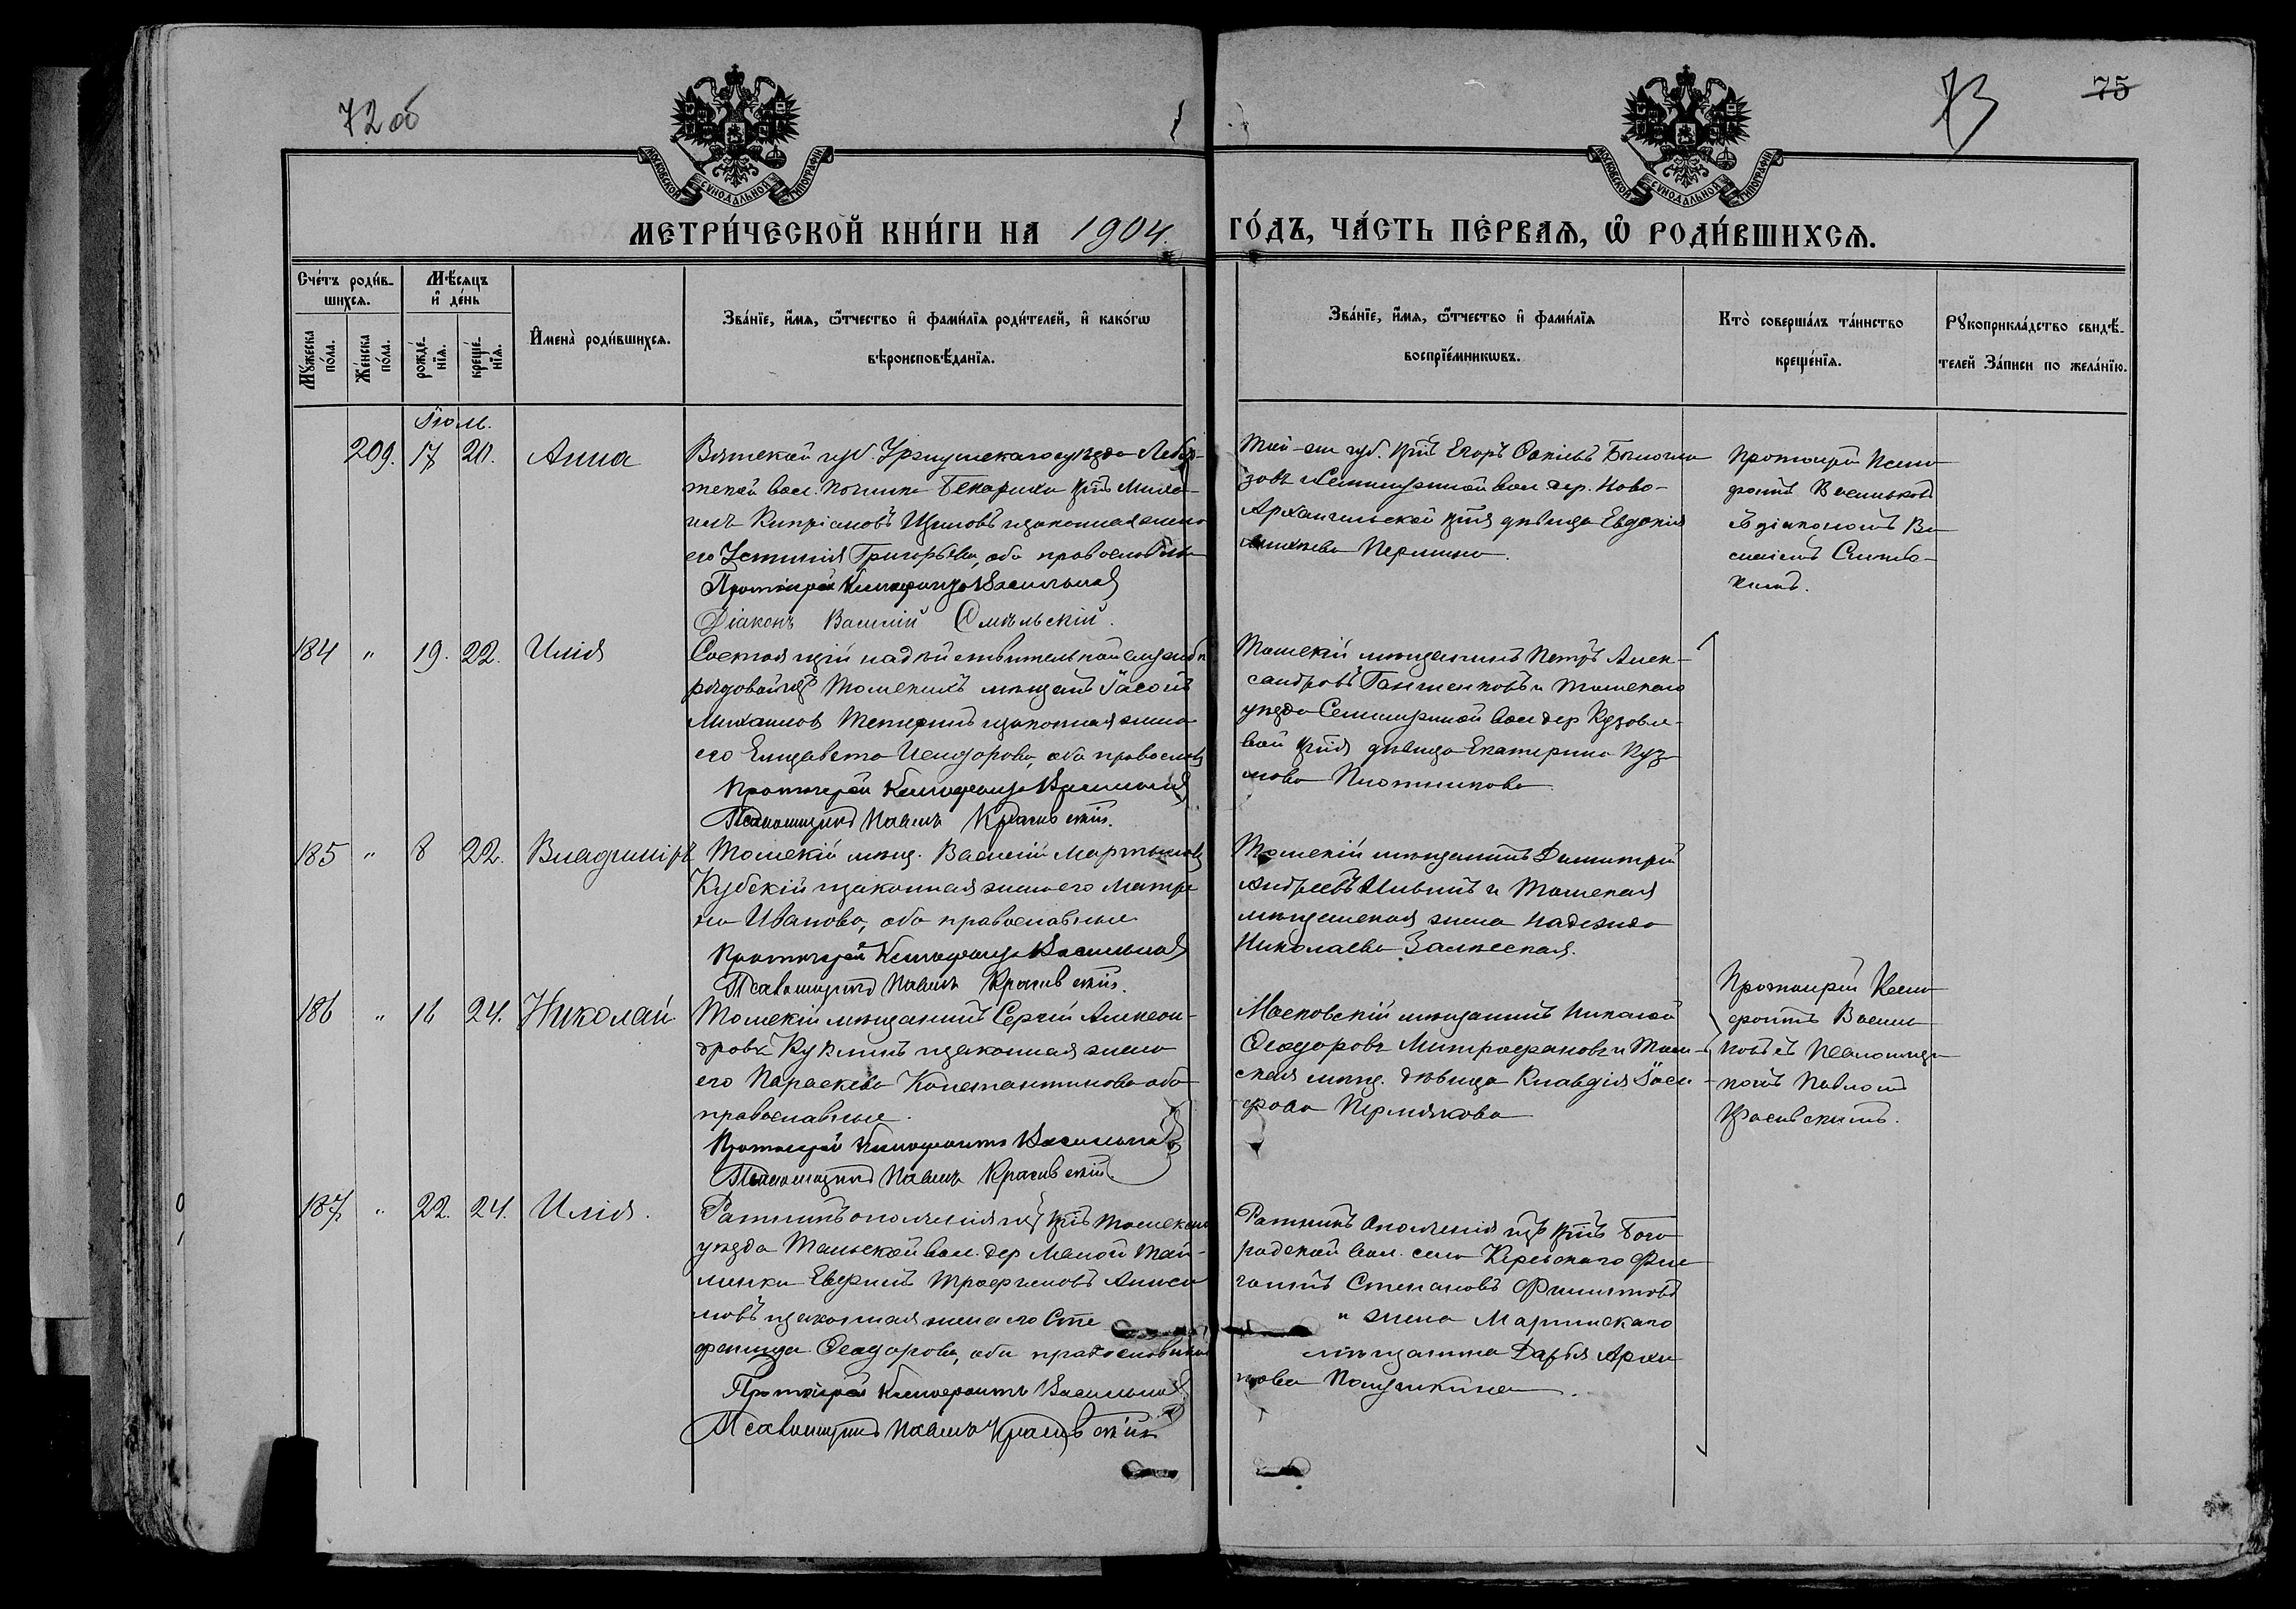 72 об
73
75
МОСКОВСКОЙ СѴНОДАЛЬНОЙ ТИПОГРАФІИ
МОСКОВСКОЙ СѴНОДАЛЬНОЙ ТИПОГРАФІИ
МЕТРИ́ЧЕСКОЙ КНИ́ГИ НА 1904. ГО́ДЪ, ЧА́СТЬ ПЕ́РВАѦ, Ѽ РОДИ́ВШИХСѦ.
Сче́тъ роди́в-
шихсѧ.
Мꙋжеска по́ла.
Же́нска по́ла.
Мѣ́сѧцъ
и҆ де́нь
рожде́-
нїѧ.
креще́-
нїѧ.
И҆мена̀ роди́вшихсѧ.
Зва́нїе, и҆́мѧ, ѻ҆́тчество и҆ фами́лїѧ роди́телей, и҆ како́гѡ
вѣроисповѣ́данїѧ.
Зва́нїе, и҆́мѧ, ѻ҆́тчество и҆ фами́лїѧ
воспрїе́мникѡвъ.
Кто̀ соверша́лъ та́инство
креще́нїѧ.
Рꙋкоприкла́дство свидѣ́-
телей За́писи по жела́нїю.
Іюль.
209. 17 20. Анна
Вятской губ. Уржумскаго уѣзда Лебя-
жской вол. починка
Кипріановъ законная жена
его Устинія Григорьева, оба православные
Протоіерей Ксенофонтъ Васильковъ
Діаконъ Василій Смѣльскій.
той-же губ. Егоръ
Семилужной вол. дер. Ново-
Архангельской дѣвица Евдокія
Пермина.
Протоіерей Ксено-
фонтъ Васильковъ
съ діакономъ Ва-
силіемъ Смѣль-
скимъ.
184 " 19. 22. Илія
Состоящій на дѣйствительной службѣ
рядовой изъ Томскихъ мѣщанъ
Михаиловъ законная жена
его Елизавета Исидорова, оба православные
Протоіерей Ксенофонтъ Васильковъ
Псаломщикъ Павелъ Красивскій.
Томскій мѣщанинъ Петръ Алек-
сандровъ и Томскаго
уѣзда Семилужной вол. дер. Кузовле-
вой дѣвица Екатерина Куз-
мова Плотникова
185 " 8 22. Владиміръ
Томскій мѣщ. Василій Мартыновъ
Кубскій законная жена его Матре-
на Иванова, оба православные
Протоіерей Ксенофонтъ Васильковъ
Псаломщикъ Павелъ Красивскій.
Томскій мѣщанинъ Димитрій
Андреевъ Ильинъ и Томская
мѣщанская жена Надежда
Николаева Залѣсская.
186 " 16 24. Николай
Томскій мѣщанинъ Сергій Алексан-
дровъ Куклинъ законная жена
его Параскева Константинова оба
православные.
Протоіерей Ксенофонтъ Васильковъ
Псаломщикъ Павелъ Красивскій.
Московскій мѣщанинъ Николай
Ѳеодоровъ Митрофановъ и Том-
ская мѣщ. дѣвица Клавдія
Пермякова
Протоіерей Ксено-
фонтъ Василь-
ковъ съ псаломщи-
комъ Павломъ
Красивскимъ.
187 " 22. 24. Илія.
Ратникъ ополченія изъ Томскаго
уѣзда вол. дер. Малой
Трофимовъ Аниси-
мовъ законная жена его Сте-
фанида Ѳеодорова, оба православные
Протоіерей Ксенофонтъ Васильковъ
Псаломщикъ Павелъ Красивскій
Ратникъ ополченія изъ Бого-
родской вол. села
Степановъ Филиповъ
и жена Маріинскаго
мѣщанина Дарья Архи-
пова Полушкина.